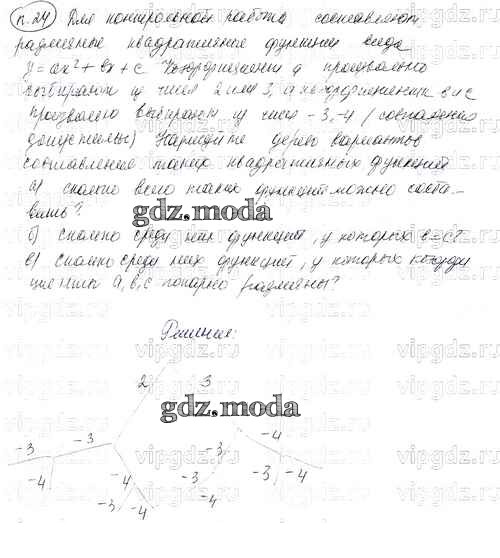 п.24 Для контрольной работы составляют
различные квадратичные функции вида
y = ax² + bx + c Коэффициент a произвольно
выбирают из чисел 2 или 3, а коэффициенты в и с
произвольно выбирают из чисел -3, -4 (совпадения
допустимы) Нарисуйте дерево вариантов
составления таких квадратичных функций
а) сколько всего таких функций можно соста-
вить?
б) сколько среди них функций, у которых в=с?
в) сколько среди них функций, у которых коэффи
циенты a, b, c попарно различны?
gdz.moda
vipgdz.ru
Решение:
2 3
gdz.moda
-3 -3 -4 -3 -4
-4 -4 -3 -3 -4
-3 -4 -4
vipgdz.ru